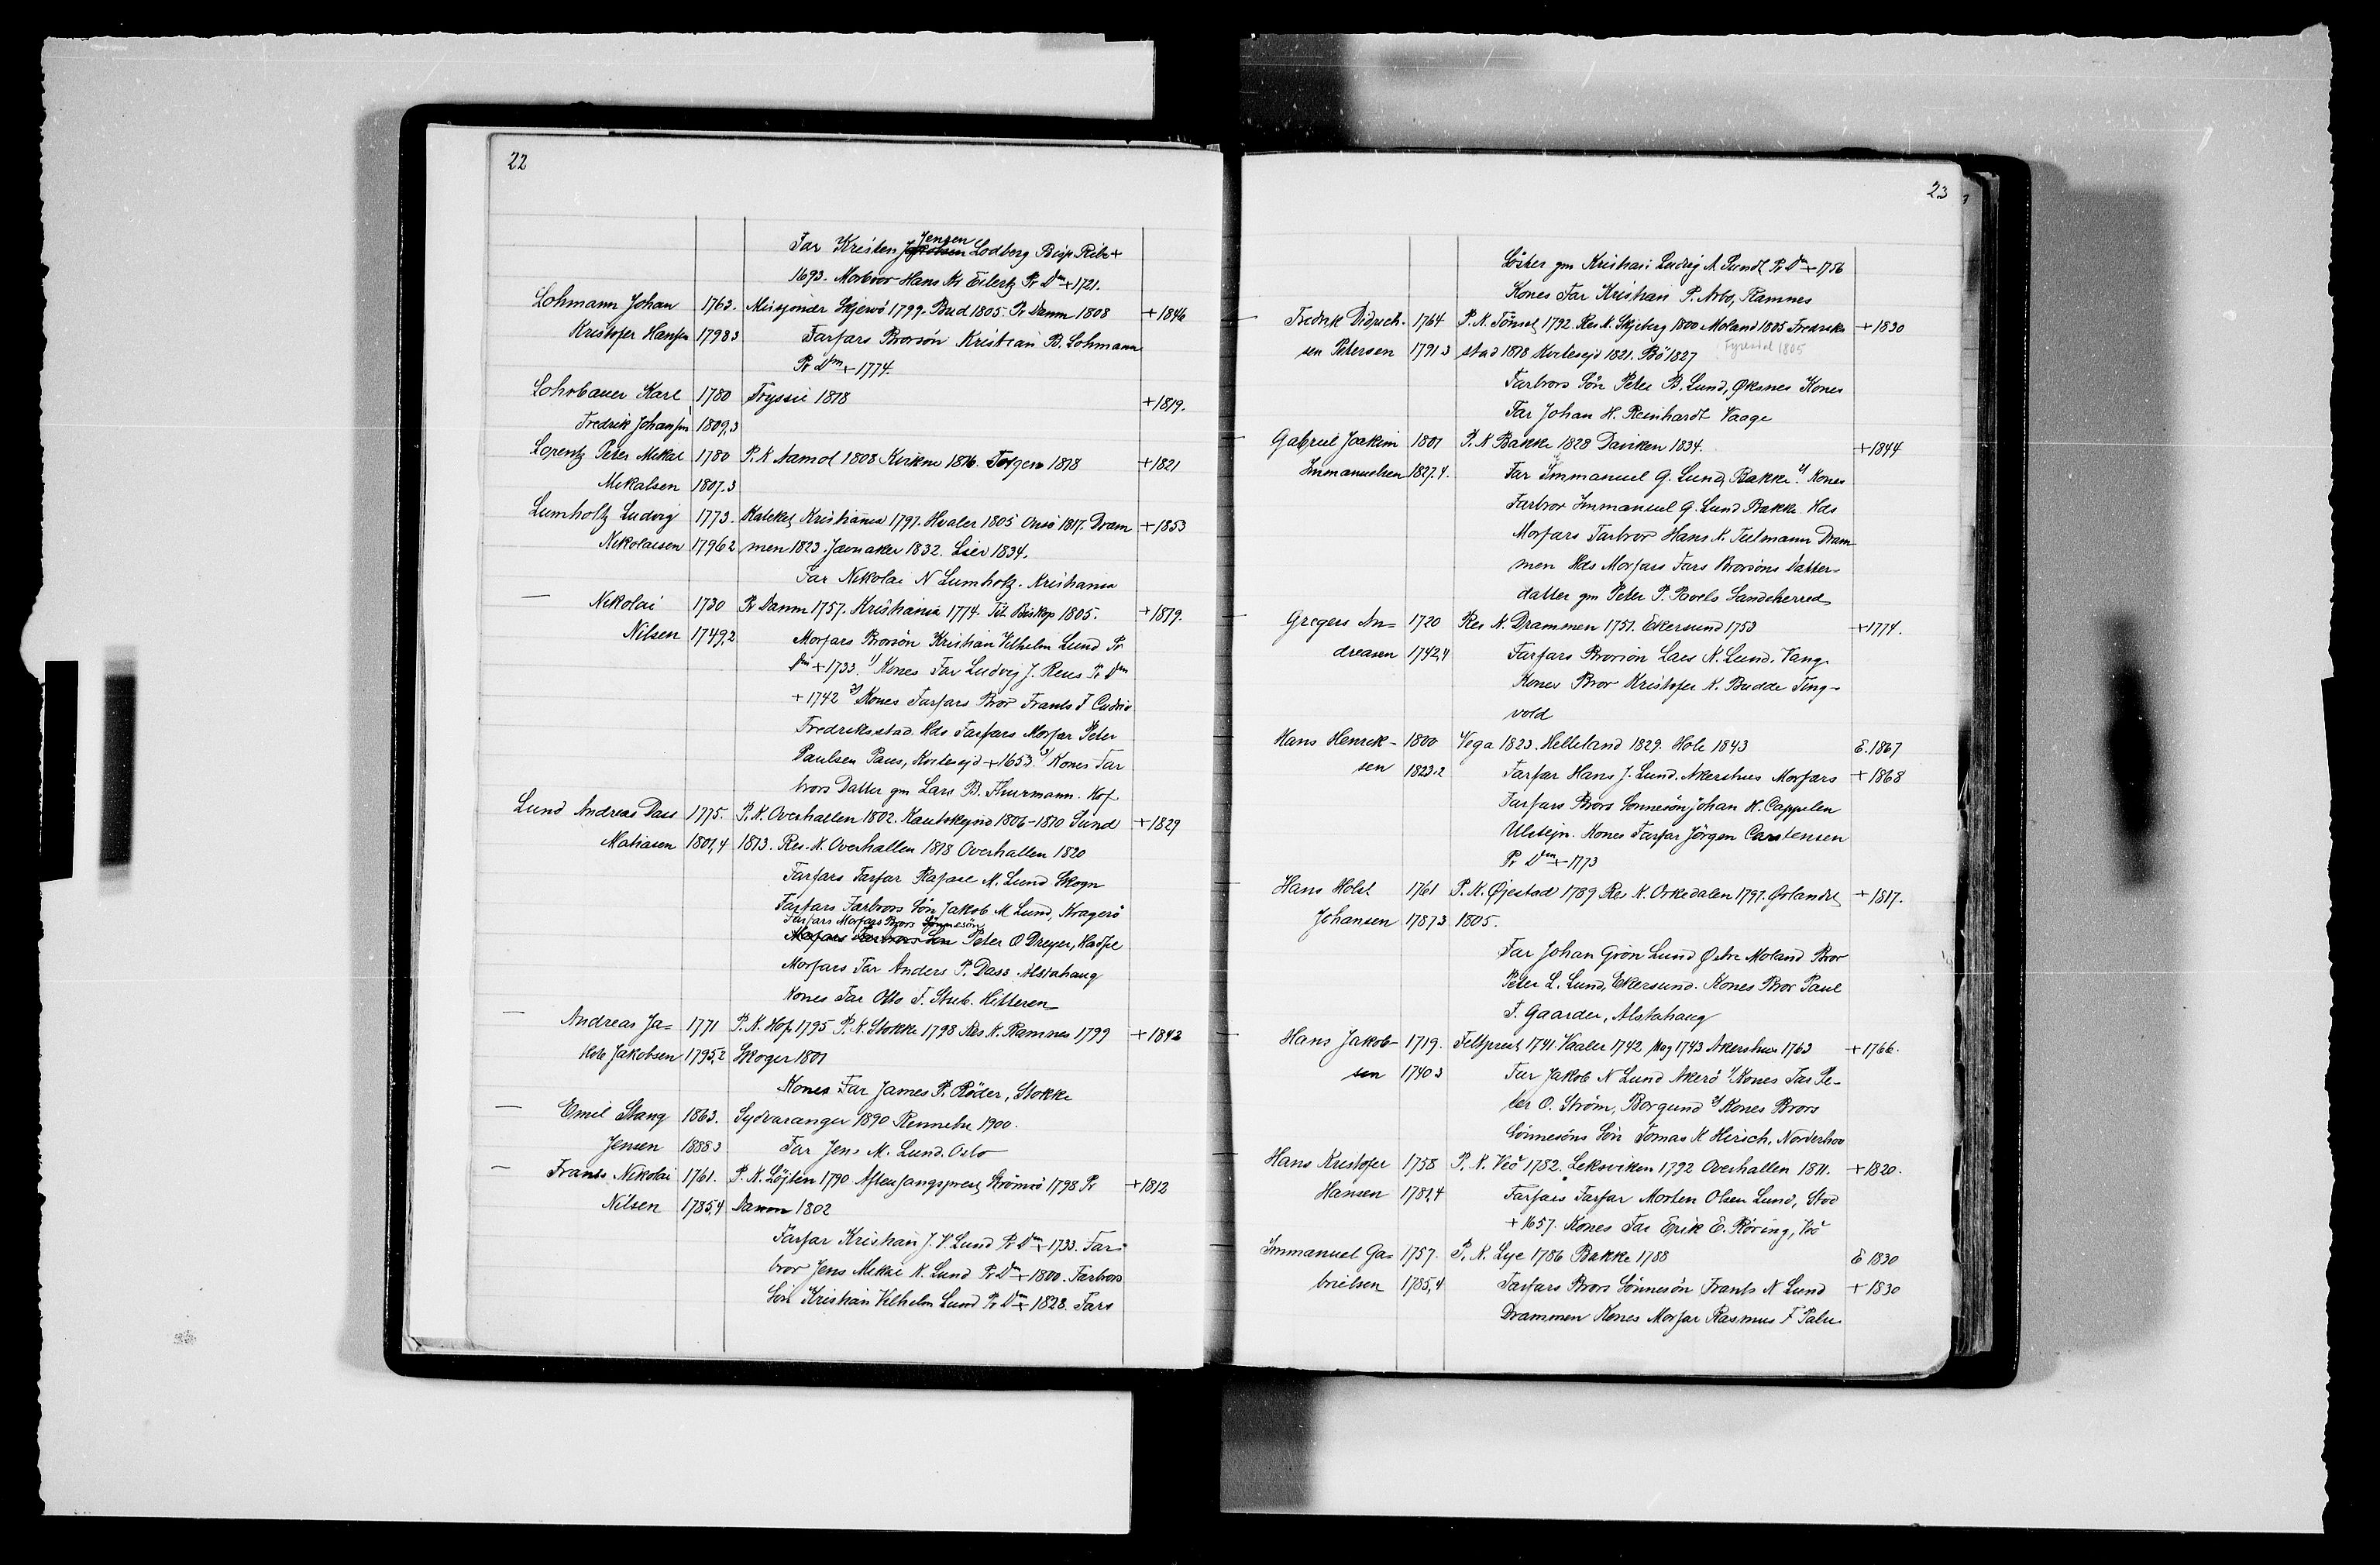 22
Far Kristen Jensen Lodberg Bisp Ribe +
1693. Morbror Hans Kr Eilertz Pr Dm + 1721.
Lohmann Johan 1763. Missjonær Skjervö 1799. Bud 1805. Pr Danm 1808 + 1846
Kristofer Hansen 1798 3 Farfars Brorsön Kristian B. Lohmann
Pr Dm + 1774.
Lohrbauer Karl 1780 Tryssil 1818 + 1819.
Fredrik Johansen 1809,3
Lorentz Peter Mikal 1780 P. K Aamot 1808 Kirkne 1816. Torgem 1818 + 1821
Mikalsen 1807.3
Lumholtz Ludvig 1773. Kateket Kristiania 1797. Hvaler 1805 Onsö 1817. Dram + 1853
Nikolaisen 1796 2 men 1823. Jævnaker 1832. Lier 1834.
Far Nikolai N Lumholtz. Kristiania
— Nikolai 1730 Pr Danm 1757. Kristiania 1774. Tit. Biskop 1805. + 1819.
Nilsen 1749,2 Morfars Brorsön Kristian Vilhelm Lund Pr
Dm + 1733. 1) Kones Far Ludvig J. Reus Pr Dm
+ 1742 2) Kones Farfars Bror Frants F Cudrio
Fredriksstad. Hds Farfars Morfar Peter
Paulsen Paus, Kvitesejd + 1653. 3) Kones Far
brors Datter gm Lars B. Thurmann. Hof
Lund Andreas Dass 1775. P. K. Overhallen 1802. Kautokejno 1806-1810 Sund + 1829
Matiasen 1801,4 1813. Res. K. Overhallen 1818 Overhallen 1820
Farfars Farfar Rafael M. Lund Skogn
Farfars Farbrors Sön Jakob M Lund, Kragerö
Farfars Morfars Brors Sönnesön
Morfars Farbrors Sön Peter O Dreyer, Hadsel
Morfars Far Anders P. Dass. Alstahaug
Kones Far Otto F. Stub. Hitteren
— Andreas Ja- 1771 P. K. Hof 1795 P. K. Stokke 1798 Res K. Ramnes 1799 + 1843
kob Jakobsen 1795,2 Skoger 1801
Kones Far James P. Röder, Stokke
— Emil Stang 1863. Sydvaranger 1890 Rennebu 1900.
Jensen 1888 3 Far Jens M. Lund. Oslo
— Frants Nikolai 1761. P. K. Löjten 1790. Aftensangsprest Strömsö 1798 Pr + 1812
Nilsen 1785,4 Danm 1802
Farfar Kristian J. V. Lund Pr Dm + 1733. Far-
bror Jens Mikkel K. Lund Pr Dm + 1800. Farbrors
Sön Kristian Vilhelm Lund Pr Dm + 1828. Fars
23
Söster gm Kristian Ludvig A Sundt Pr Dm + 1756
Kones Far Kristian P. Arbo, Ramnes
— Fredrik Didrich- 1764 P. K. Tönset 1792. Res K. Skjeberg 1800 Moland 1805 Fredriks + 1830
sen Petersen 1791 3 stad 1818 Kvitesejd 1821. Bö 1827 Fyresdal 1805
Farbrors Sön Peter B. Lund, Øksnes Kones
Far Johan H. Reinhardt Vaage
— Gabriel Joakim 1801 P. K Bakke 1828 Dauken 1834. + 1844
Immanuelsen 1827.4. Far Immanuel G. Lund, Bakke. 2) Kones
Farbror Immanuel G. Lund Bakke. Hds
Morfars Farbror Hans K. Tulmann Dram
men Hds Morfars Fars Brorsöns Datter-
datter gm Peter P. Pavels Sandeherred
— Gregers An- 1720 Res K. Drammen 1751. Ekersund 1753 + 1774.
dreasen 1742,4 Farfars Brorsön Lars K. Lund. Vang.
Kones Bror Kristofer K. Budde Ting-
vold
Hans Henrik- 1800 Vega 1823. Helleland 1829. Hole 1843 E. 1867
sen 1823.2 Farfar Hans J. Lund. Akershus Morfars + 1868
Farfars Brors Sonnesön Johan H. Cappelen
Ulstejn. Kones Farfar Jörgen Carstensen
Pr Dm + 1773
— Hans Holst 1761 P. K. Øjestad 1789 Res K. Orkedalen 1797. Ørlandet + 1817.
Johansen 1787,3 1805.
Far Johan Grön Lund Østre Moland Bror
Peter L. Lund, Ekersund. Kones Bror Paul
F. Gaarder, Alstahaug
— Hans Jakob- 1719. Feltprest 1741. Vaaler 1742 Mag 1743 Akershus 1763 + 1766.
sen 1740 3 Far Jakob N Lund Akerö 1) Kones Far Pe-
ter O. Ström, Borgund 2) Kones Brors
Sönnesöns Sön Tomas K Hirsch, Norderhov
Hans Kristofer 1758 P. K. Veö 1782. Leksviken 1792 Overhallen 1811. + 1820.
Hansen 1781,4 Farfars Farfar Morten Olsen Lund, Stod
+ 1657. Kones Far Erik E. Röring, Veö
Immanuel Ga- 1757. P. K. Lye 1786 Bakke 1788 E 1830
brielsen 1785,4 Farfars Brors Sönnesön Frants N Lund + 1830
Drammen Kones Morfar Rasmus F Palu